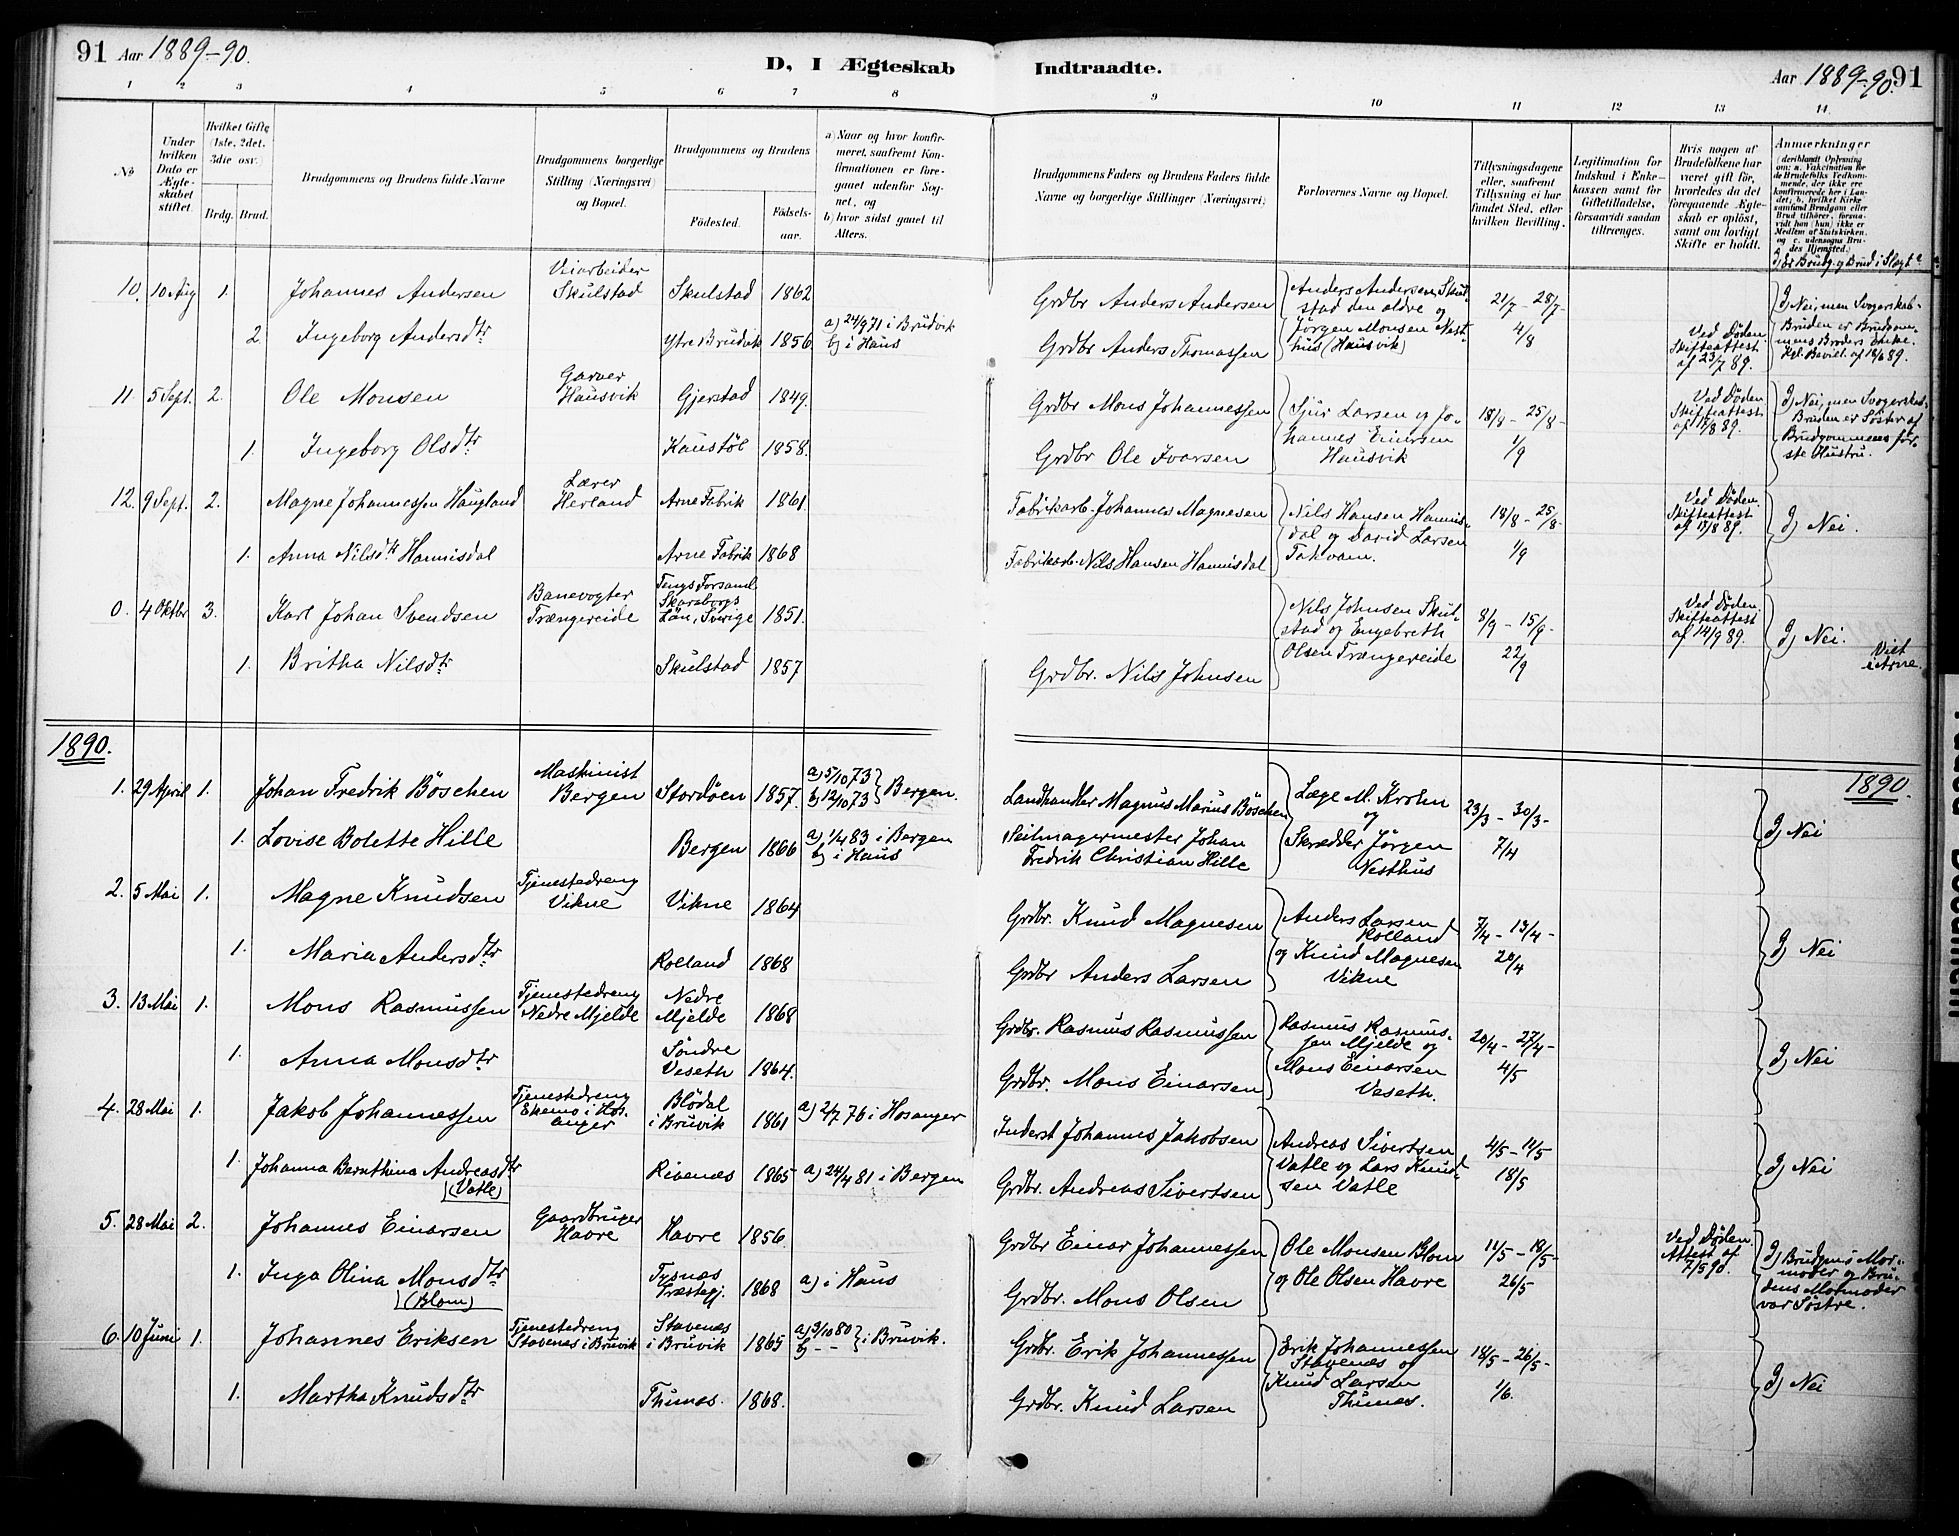 91 Aar 1889-90.
D, I Ægteskab Indtraadte.
Aar 1889-90. 91
1 2 3 4 5 6 7 8 9 10 11 12 13 14
No
Under hvilken Dato er Ægteskabet stiftet.
Hvilket Gifte (1ste, 2det. 3die osv.)
Brdg. Brud.
Brudgommens og Brudens fulde Navne
Brudgommens borgerlige Stilling (Næringsvei) og Bopæl.
Brudgommens og Brudens
Fødested. Fødselsaar.
a) Naar og hvor konfirmeret, saafremt Konfirmationen er foregaaet udenfor Sognet, og
b) hvor sidst gaaet til Alters.
Brudgommens Faders og Brudens Faders fulde Navne og borgerlige Stillinger (Næringsvei)
Forlovernes Navne og Bopæl.
Tillysningsdagene eller, saafremt Tillysning ei har fundet Sted, efter hvilken Bevilling.
Legitimation for Indskud i Enkekassen samt for Giftetilladelse, forsaavidt saadan tiltrænges.
Hvis nogen af Brudefolkene har været gift før, hvorledes da det foregaaende Ægteskab er opløst, samt om lovligt Skifte er holdt.
Anmærkninger
(deriblandt Oplysning om: a. Vakcination for de Brudefolks Vedkommende, der ikke ere konfirmerede her i Landet; b. hvilket Kirkesamfund Brudgom eller Brud tilhører, forsaavidt han (hun) ikke er Medlem af Statskirken, og c. udensogns Brudes Hjemsted.)
d) Er Brudg. og Brud i Slægt?
10. 10 Aug 1. Johannes Andersen Veiarbeider Skulstad Skulstad 1862 Grdbr Anders Andersen Anders Andersen Skulstad den ældre og Jørgen Monsen Nesthus (Hausvik) 21/7 - 28/7 - 4/8
d) Nei, men Svogerskab- Bruden er Brudgommens Broders Enke. Kgl. Bevil. af 18/6 89.
2 Ingeborg Andersdtr Ytre Bruvik 1856 a) 24/9 71 i Brudvik b) i Haus Grdbr Anders Thomassen Ved Døden Skifteattest af 23/7 89.
11. 5 Sept. 2. Ole Monsen Garver Hausvik Gjerstad 1849. Grdbr Mons Johannessen Sjur Larsen og Johannes Einersen Hausvik 18/8 - 25/8 - 1/9 Ved Døden Skifteattest af 17/8 89.
d) Nei, men Svogerskab. Bruden er Søster af Brudgommens første Hustru.
1. Ingeborg Olsdtr Haustøl 1858. Grdbr Ole Ivarsen
12. 9 Sept. 2. Magne Johannessen Haugland Lærer Herland Arne Fabrik 1861 Fabrikarb. Johannes Magnesen Nils Hansen Hannisdal og David Larsen Takvam. 18/8 - 25/8 - 1/9 Ved Døden Skifteattest af 17/8 89. d) Nei.
1. Anna Nilsdtr Hannisdal Arne Fabrik 1868 Fabrikarb. Nils Hansen Hannisdal
0. 4 Oktbr 3. Karl Johan Svendsen Banevogter Trængereide Skaraborgs Län, Sverige 1851. Nils Johnsen Skulstad og Engebreth Olsen Trængereide 8/9 - 15/9 - 22/9 Ved Døden. Skifteattest af 14/9 89. d) Nei. Viet i Arne.
1. Britha Nilsdtr Skulstad 1857 Grdbr. Nils Johnsen
1890. 1890.
1. 29 April 1. Johan Fredrik Böschen Maskinist Bergen Stordøen 1857. a) 5/10 73 b) 12/10 73 Bergen. Landhandler Magnus Marius Böschen Læge M. Krohn og Skrædder Jørgen Nesthus 23/3 - 30/3 - 7/4 d) Nei
1. Lovise Bolette Hille Bergen 1866 a) 1/4 83 i Bergen b) i Haus Seilmagermester Johan Fredrik Christian Hille
2. 5 Mai 1. Magne Knudsen Tjenestedreng Vikne Vikne 1864 Grdbr. Knud Magnesen Anders Larsen Rolland og Knud Magnesen Vikne 7/4 - 13/4 - 20/4 d) Nei
1. Maria Andersdtr Rolland 1868 Grdbr Anders Larsen
3. 13 Mai 1. Mons Rasmussen Tjenestedreng Nedre Mjelde Nedre Mjelde 1868 Grdbr. Rasmus Rasmussen Rasmus Rasmussen Mjelde og Mons Einarsen Veseth. 20/4 - 27/4 - 4/5 d) Nei
1. Anna Monsdtr Søndre Veseth 1864. Grdbr. Mons Einarsen
4. 28 Mai 1. Jakob Johannessen Tjenestedreng Ekemo i Hosanger Blødal i Bruvik 1861 a) 2/7 76 i Hosanger Inderst Johannes Jakobsen Andreas Sivertsen Vatle og Lars Knudsen Vatle 4/5 - 11/5 18/5 d) Nei
1. Johanna Bernthina Andreasdtr (Vatle) Rivenæs 1865 a) 24/4 81 i Bergen Grdbr. Andreas Sivertsen
5. 28 Mai 2. Johannes Einarsen Gaardbruger Havre Havre 1856. Grdbr Einar Johannessen Ole Monsen Blom og Ole Olsen Havre 11/5 - 18/5 - 26/5 Ved Døden. Attest af 7/5 90. d) Brudgms Mormoder og Brudens Mormoder var Søstre.
1. Inga Olina Monsdtr (Blom) Tysnæs Præstegj. 1868 a) i Haus Grdbr. Mons Olsen
6. 10 Juni 1. Johannes Eriksen Tjenestedreng Stavenæs i Bruvik Stavenæs i Bruvik 1865 a) 3/10 80 b) - - i Bruvik. Grdbr. Erik Johannessen Erik Johannessen Stavenæs og Knud Larsen Thunæs. 18/5 - 26/5 - 1/6. d) Nei
1. Martha Knudsdtr Thunæs. 1868. Grdbr. Knud Larsen